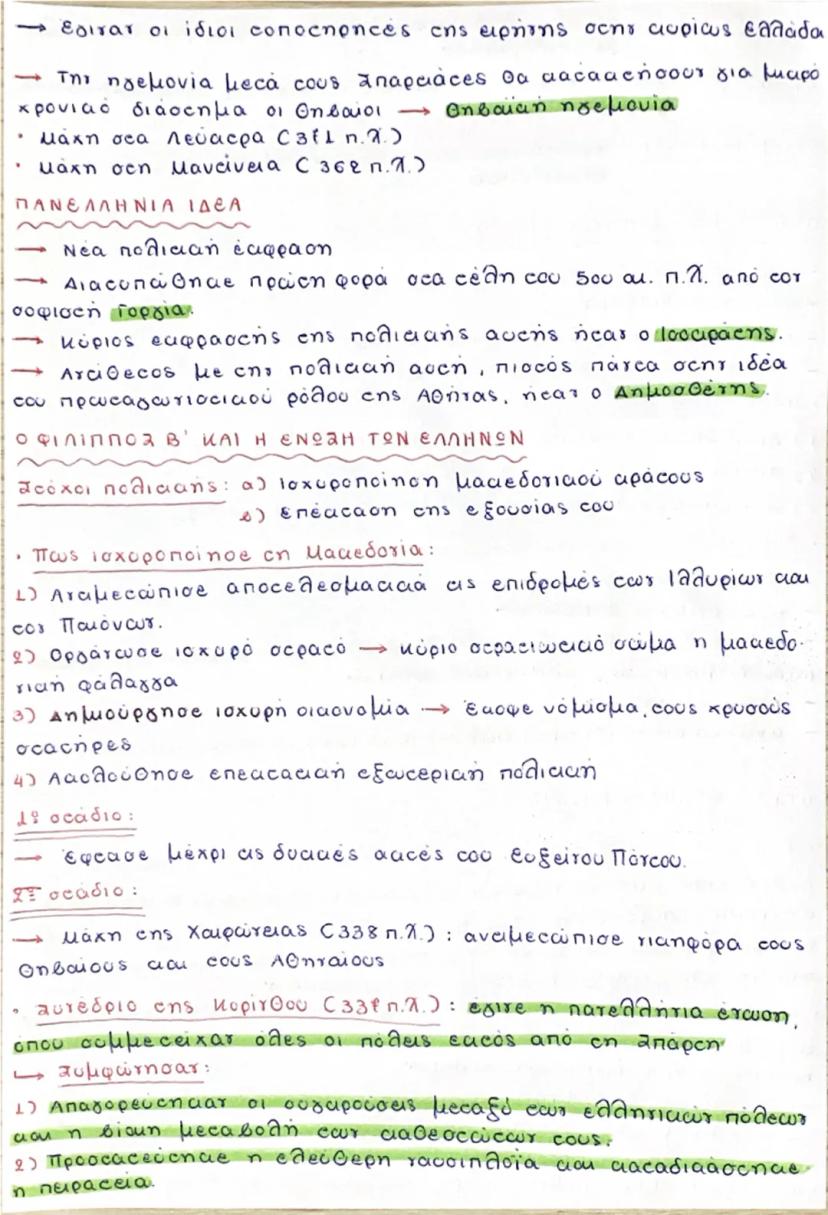 → Έγιναν οι ίδιοι τοποτηρητές της ειρήνης στην κυρίως Ελλάδα
→ Την ηγεμονία μετά τους Σπαρτιάτες θα κατακτήσουν για μικρό
χρονικό διάστημα οι Θηβαίοι → Θηβαϊκή ηγεμονία
· Μάχη στα Λεύκτρα (371 π.Χ.)
· Μάχη στη Μαντίνεια (362 π.Χ.)
ΠΑΝΕΛΛΗΝΙΑ ΙΔΕΑ
→ Νέα πολιτική έκφραση
→ Διατυπώθηκε πρώτη φορά στα τέλη του 5ου αι. π.Χ. από τον
σοφιστή Γοργία.
→ Κύριος εκφραστής της πολιτικής αυτής ήταν ο Ισοκράτης.
→ Αντίθετος με την πολιτική αυτή, πιστός πάντα στην ιδέα
του πρωταγωνιστικού ρόλου της Αθήνας, ήταν ο Δημοσθένης.
Ο ΦΙΛΙΠΠΟΣ Β' ΚΑΙ Η ΕΝΩΣΗ ΤΩΝ ΕΛΛΗΝΩΝ
Στόχοι πολιτικής: α) Ισχυροποίηση μακεδονικού κράτους
β) Επέκταση της εξουσίας του
· Πως ισχυροποίησε τη Μακεδονία:
1) Αντιμετώπισε αποτελεσματικά τις επιδρομές των Ιλλυρίων και
των Παιόνων.
2) Οργάνωσε ισχυρό στρατό → κύριο στρατιωτικό σώμα η μακεδο-
νική φάλαγγα
3) Δημιούργησε ισχυρή οικονομία → Έκοψε νόμισμα, τους χρυσούς
στατήρες
4) Ακολούθησε επεκτατική εξωτερική πολιτική
1ο στάδιο:
→ Έφτασε μέχρι τις δυτικές ακτές του Ευξείνου Πόντου.
2ο στάδιο:
→ Μάχη της Χαιρώνειας (338 π.Χ.): αντιμετώπισε νικηφόρα τους
Θηβαίους και τους Αθηναίους
· Συνέδριο της Κορίνθου (337 π.Χ.): έγινε η πανελλήνια ένωση,
όπου συμμετείχαν όλες οι πόλεις εκτός από τη Σπάρτη
↳ Συμφώνησαν:
1) Απαγορεύτηκαν οι συγκρούσεις μεταξύ των ελληνικών πόλεων
και η βίαιη μεταβολή των καθεστώτων τους.
2) Προστατεύτηκε η ελεύθερη ναυσιπλοΐα και καταδικάστηκε
η πειρατεία.